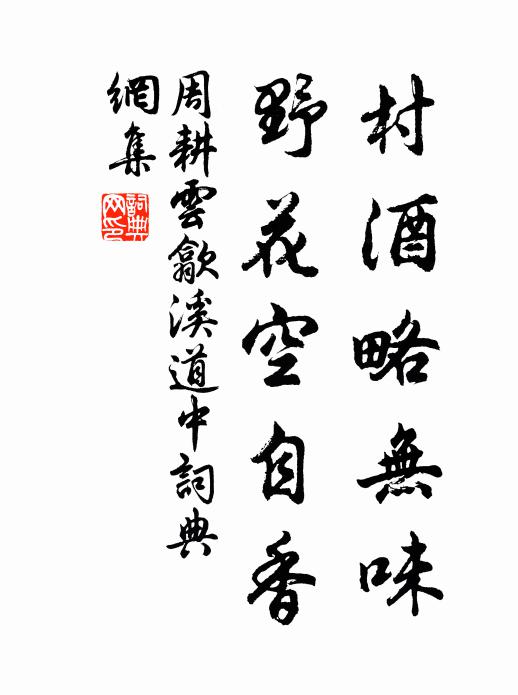 村酒略無味
野花空自香
周耕雲歙溪道中詞典
網集
詞典
网印